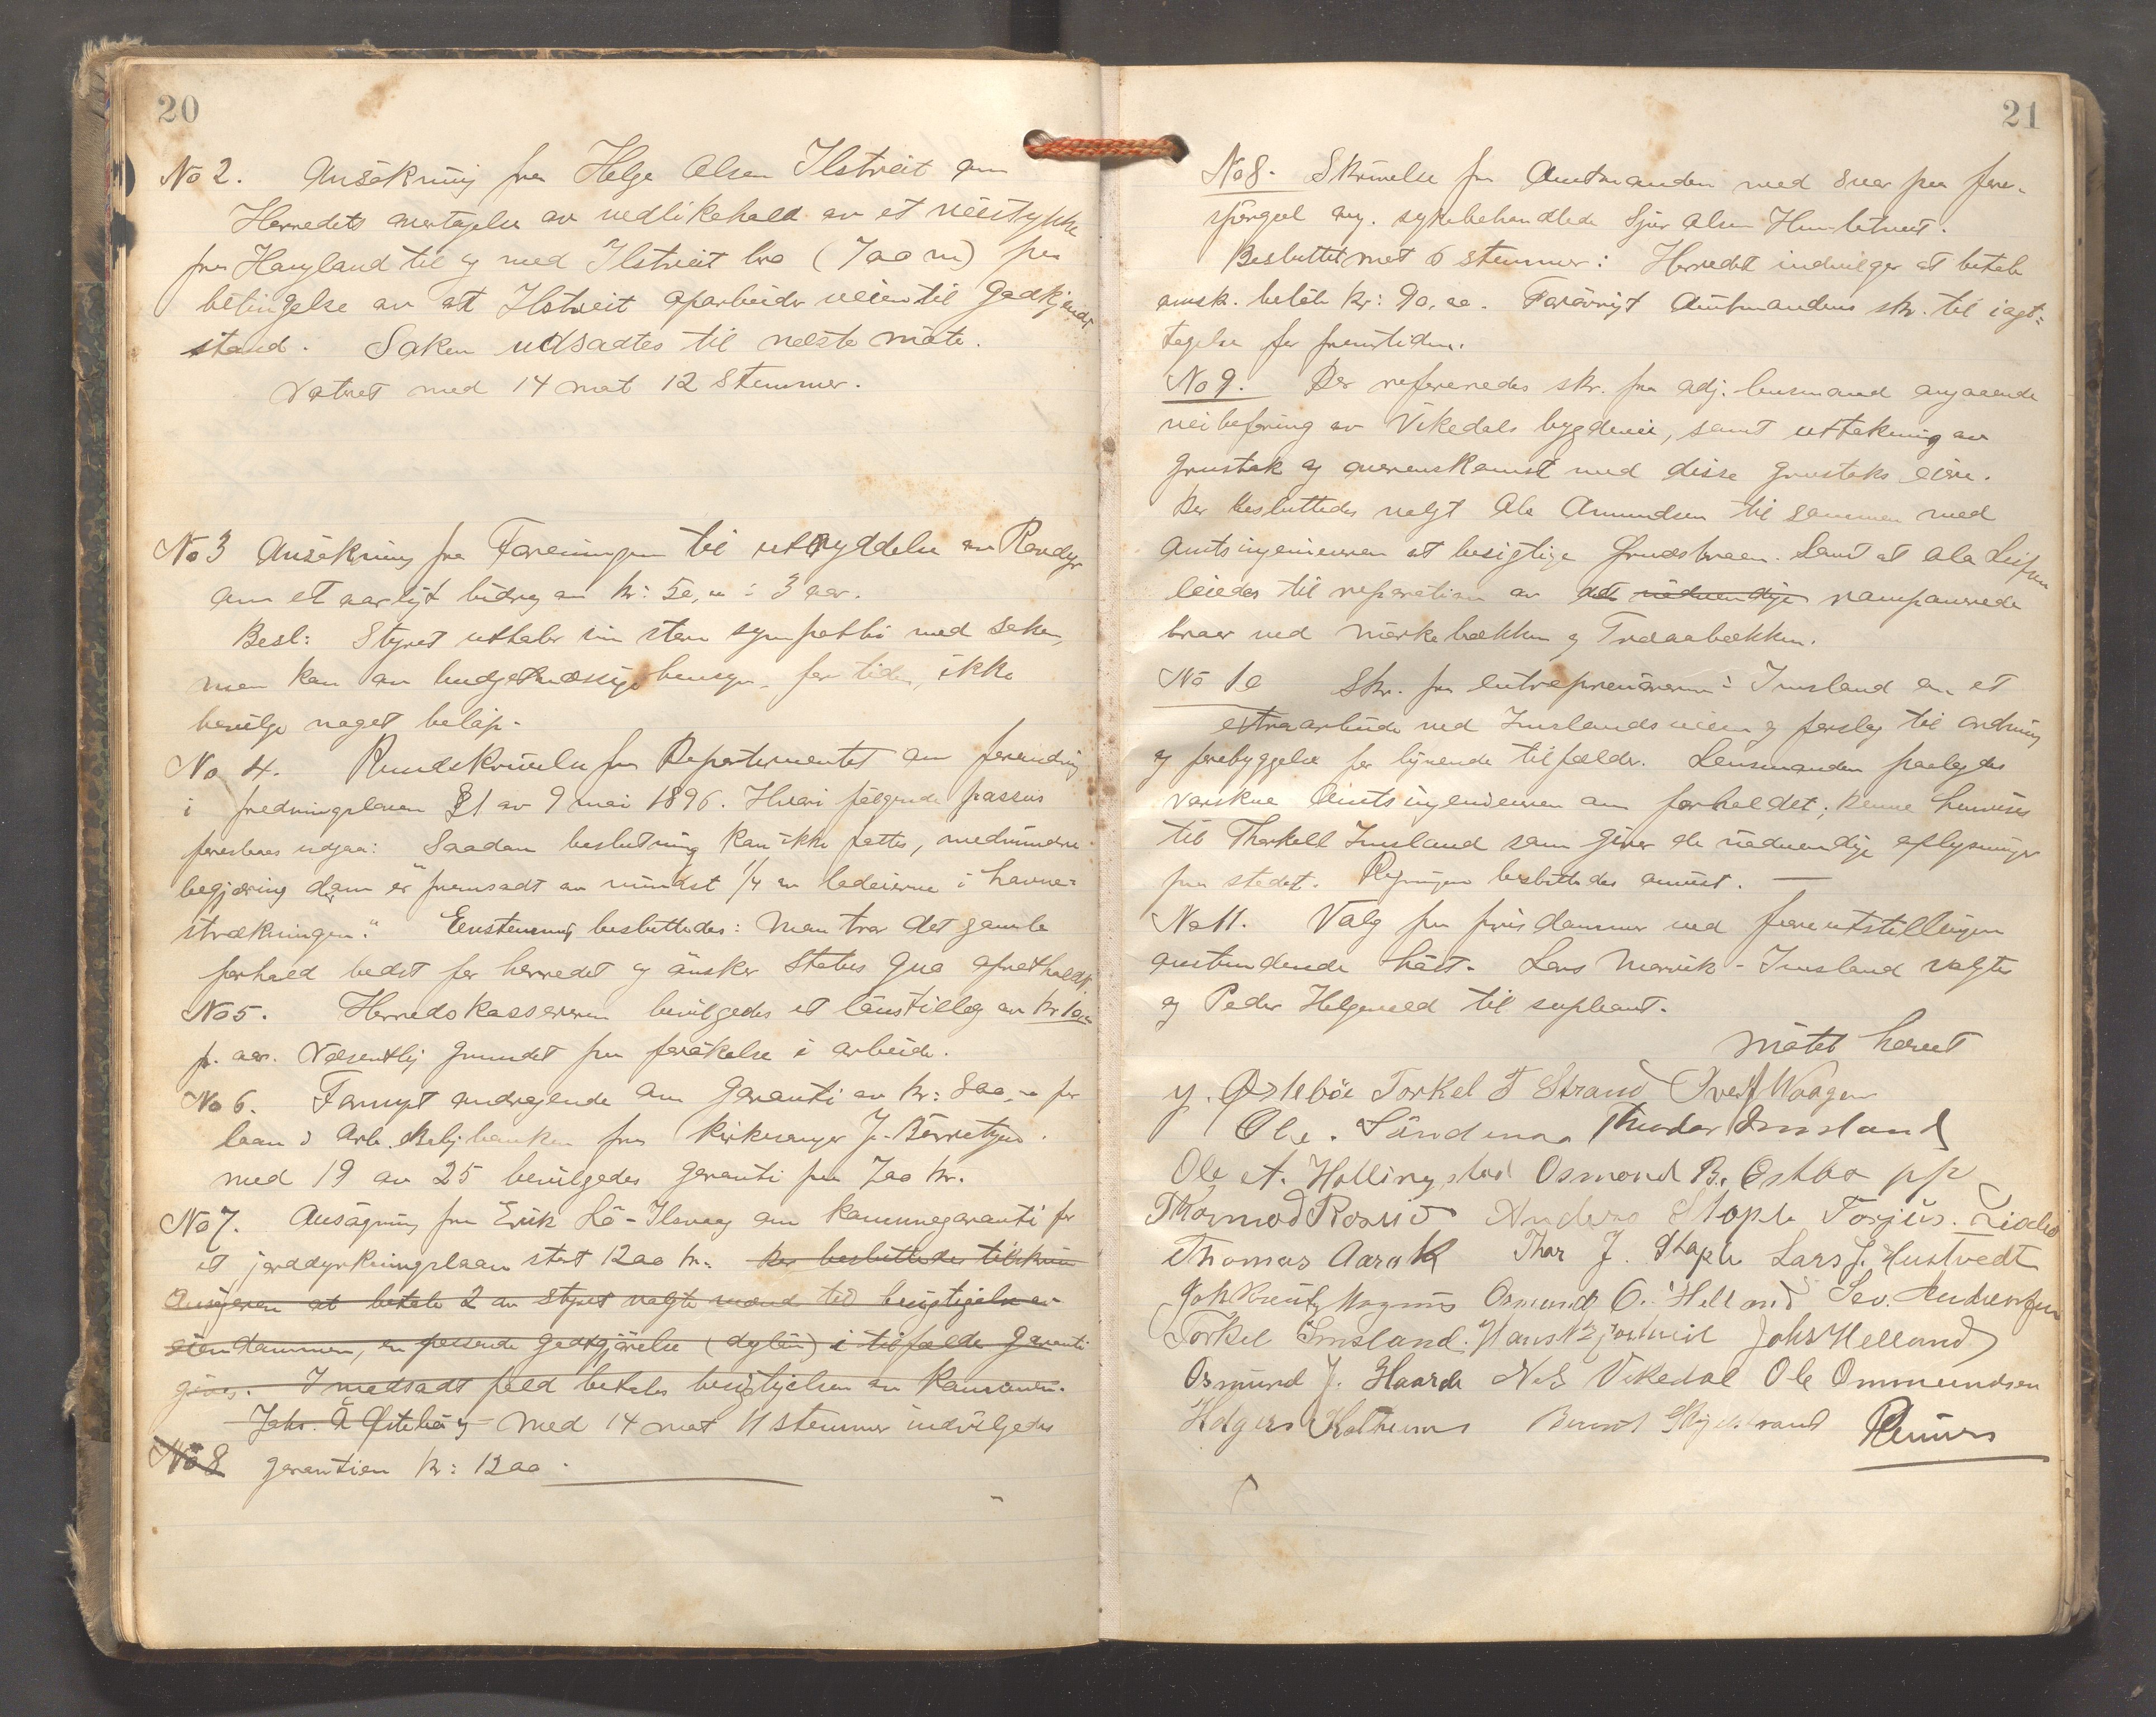 20
No 2. Ansökning fra Helge Olsen Ilstveit om
Herredets overtagelse av vedlikehold av et veistykke
fra Haugland til og med Ilstveit bro (700 m) paa
betingelse av at Ilstveit oparbeider veien til godkjendt
stand. Saken udsadtes til neste möte.
Votret med 14 mot 12 stemmer.
No 3 Ansökning fra Foreningen til utryddelse av Rovdyr
om et aarligt bidrag av kr: 50,00 i 3 aar.
Besl: Styret uttaler sin store sympathi med saken,
men kan av budgetmæssige hensyn, for tiden, ikke
bevilge noget belöp.
No 4. Rundskrivelse fra Departementet om forandring
i fredningsloven §1 av 9 mai 1896. Hvori fölgende passus
foreslaaes udgaa: "Saadan beslutning kan ikke fattes, medmindre
begjæring derom er fremsadt av mindst 1/4 av lodeierne i havne-
strækningen." Eenstemmig besluttedes: Man tror det gamle
forhold bedst for herredet og önsker Status Quo opretholdt.
No 5. Herredskassereren bevilgedes et lönstillæg av kr 100
p. aar. Væsentlig grundet paa forökelse i arbeide.
No 6. Fornyet andragende om Garanti av kr: 800,00 for
laan i Arb. & Boligbanken fra Kirkesanger J.
med 19 av 25 bevilgedes garanti paa 700 kr.
No 7. Ansögning fra Erik Lö-Ilsvaag om kommunegaranti for
et jorddyrkningslaan stort 1200 kr. Der besluttedes tilskrive
Ansögeren at betale 2 av styret valgte mænd ted besigtigelse av
eiendommen, en passende godtgjörelse (daglön) i tilfælde Garanti
gives. I modsadt fald betales besigtigelsen av kommunen.
Johs. Östebö og Med 14 mot 11 stemmer indvilgedes
No 8 garantien kr: 1200.
21
No 8. Skrivelse fra Amtmanden med svar paa fore-
spörgsel ang. sykebehandlede Sjur Olsen
Besluttet mot 6 stemmer: Herredet indvilger at betale
omsk. belöb kr: 90,00. Forövrigt Amtmandens skr. til iagt-
tagelse for fremtiden.
No 9. Der refereredes skr. fra adj. lensmand angaaende
veibeföring av Vikedals bygdevei, samt uttakning av
grustak og overenskomst med disse grustaks eiere.
Der besluttedes valgt Ole Omundsen til sammen med
Amtsingeniören at besigtige broen. Samt at Ola
leiedes til reparation av det nödvendige ramponerede
broer ved Mörkebækken og Tredaabækken.
No 10 Skr. fra entreprenörerne i Imsland om et
extraarbeide ved Imslandsveien og forslag til ordning
og forebyggelse for lignende tilfælder. Lensmanden paalagdes
varskue Amtsingeniören om forholdet; denne henvises
til Thorkell Imsland som giver de nödvendige oplysninger
paa stedet. Regningen besluttedes anvist.
No 11. Valg paa prisdommer ved faareutstillingen
anstundende höst. Lars Mærvik-Imsland valgtes
og Peder Helgevold til supleant.
Mötet hævet
y. Östeböe Torkel T Strand Sven Waagen
Ole. Söndenaa Theodor Imsland
Ole A. Hollingstad Osmond B. Østbø pp
Thormod Rosvid Anders Stople Torjus.
Thomas Aarak Thor J. Stople Lars J. Hustvedt
Joh Kreutz Magnus Osmund O. Helland Sev. Andersen
Torkel Imsland. Hans Johs Helland
Osmund J. Haarde N.S Vikedal Ole Ommundsen
Holger Berent Skjelstrand